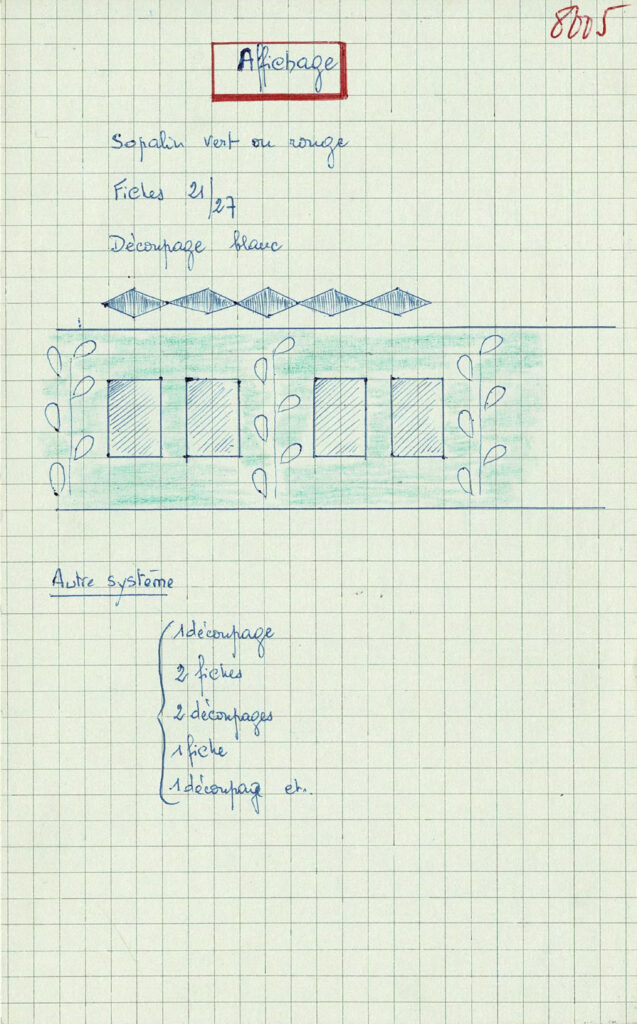 8005
Affichage
Sopalin vert ou rouge
Fiches 21/27
Découpage blanc
Autre système
1 découpage
2 fiches
2 découpages
1 fiche
1 découpage et..